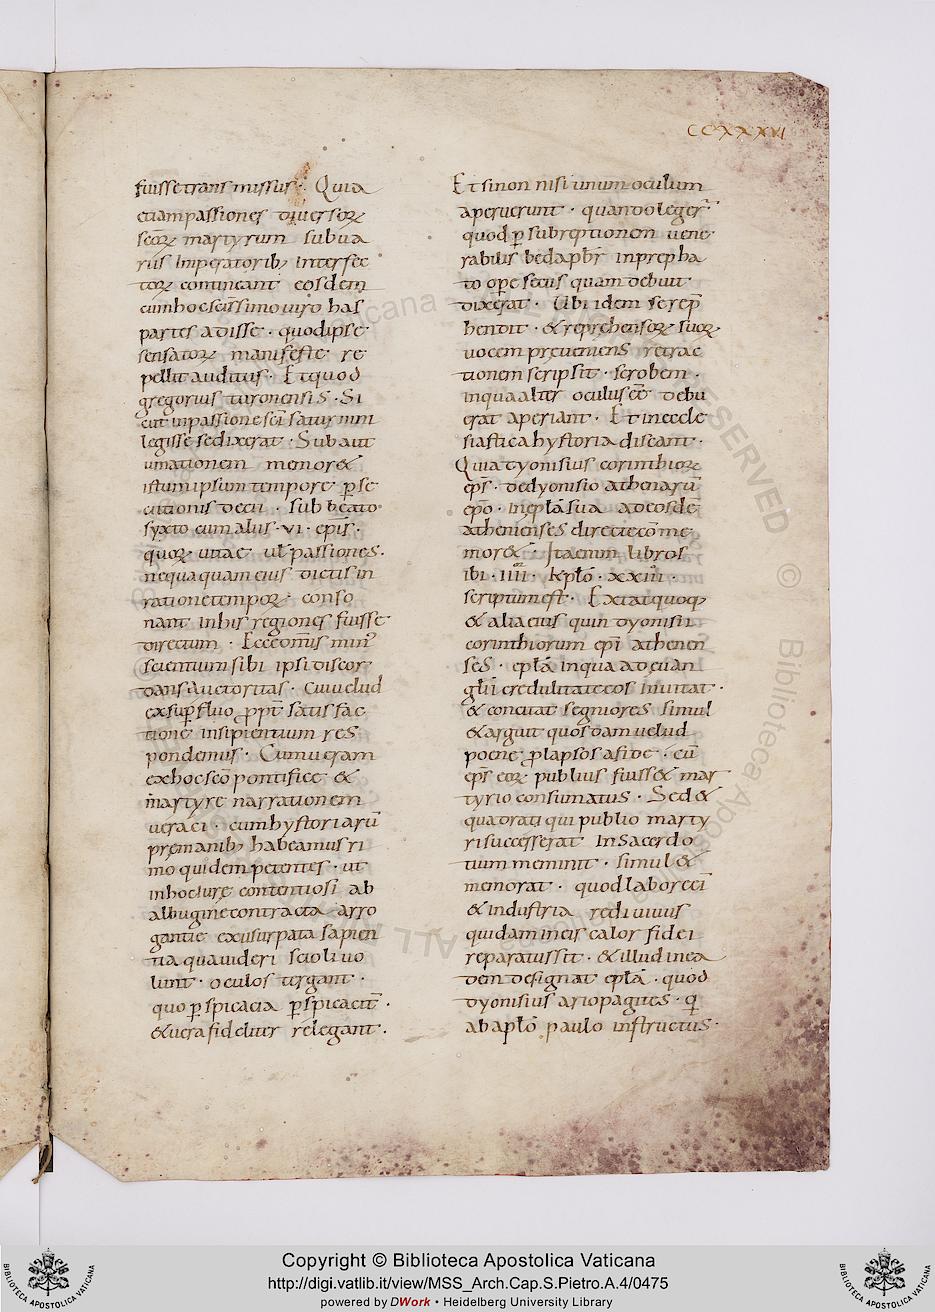 CCXXXVI
fuisse transmissus · Quia
etiam passiones diuersoꝝ
scoꝝ martyrum sub ua
riis imperatorib; interfec
toꝝ contineant eosdem
cum hoc scissimo uiro has
partes adisse · quod ipse
sensatoꝝ manifeste re
pellit auditus · Et quod
gregorius turonensis · Si
cut in passione sci saturnini
legisse se dixerat · Sub aut
umationem memor&
istum ipsum tempore p̱se
cutionis decii · sub beato
syxto cum aliis · vi · ep̄is ·
quoꝝ uitae ul̄ passiones ·
nequaquam eius dictis in
ratione tempoꝝ conso
nant in his regiones fuisse
directum · Ecce om̄is min̄
scientium sibi ipsi discor
dans auctoritas · Cui uelud
ex sup̱fluo ꝓpt̄ satisfac
tione insipientium res
pondemus · Cum ueram
ex hoc sc̄o pontifice &
martyre narrationem
ueraci · cum hystoriarū
prę manib; habeamus ri
mo quidem petentes · ut
in hoc iure contentiosi ab
albugine contracta arro
gantię ex usurpata sapien
tia qua uideri scioli uo
lunt · oculos tergant ·
quo p̱spicacia p̱spicacit̄ ·
& uera fideliter relegant ·
Et si non nisi unum oculum
aperuerunt · quando leger̄
quod p̱ subreptionem uene
rabilis beda pbr̄ in prepha
to opere secus quam debuit
dixerat · Ubi idem se rep̱
hendit · & reprehensoꝝ suoꝝ
uocem pręueniens retrac
tionem scripsit · scrobem ·
inqua alter oculus eē debu
erat aperiant · Et in eccle
siastica hystoria discant ·
Quia dyonisius corinthioꝝ
ep̄s · de dyonisio athenarū
ep̄o · in epl̄a sua ad eosdē
athenienses directe cōme
mor& · Ita enim libros
ibi · iiii · kpl̄o · xxiii ·
scriptum est · Extat quoq;
& alia eius quin dyonisii
corinthiorum ep̄i athenen
ses · epl̄a in qua ad euan
glīi credulitate eos inuitat ·
& concitat segniores simul
& arguit quosdam uelud
poene ꝓlapsos a fide · cū
ep̄s eoꝝ publius fuiss& mar
tyrio consumatus · Sed &
quadrati qui publio marty
ri successerat in sacerdo
tium meminit · simul &
memorat · quod labore ei
& industria rediuiuus
quidam in eis calor fidei
reparatus sit · & illud in ea
dem designat epl̄a · quod
dyonisius ariopagites · q̄
ab apl̄o paulo instructus ·
Copyright © Biblioteca Apostolica Vaticana
http://digi.vatlib.it/view/MSS_Arch.Cap.S.Pietro.A.4/0475
powered by DWork • Heidelberg University Library